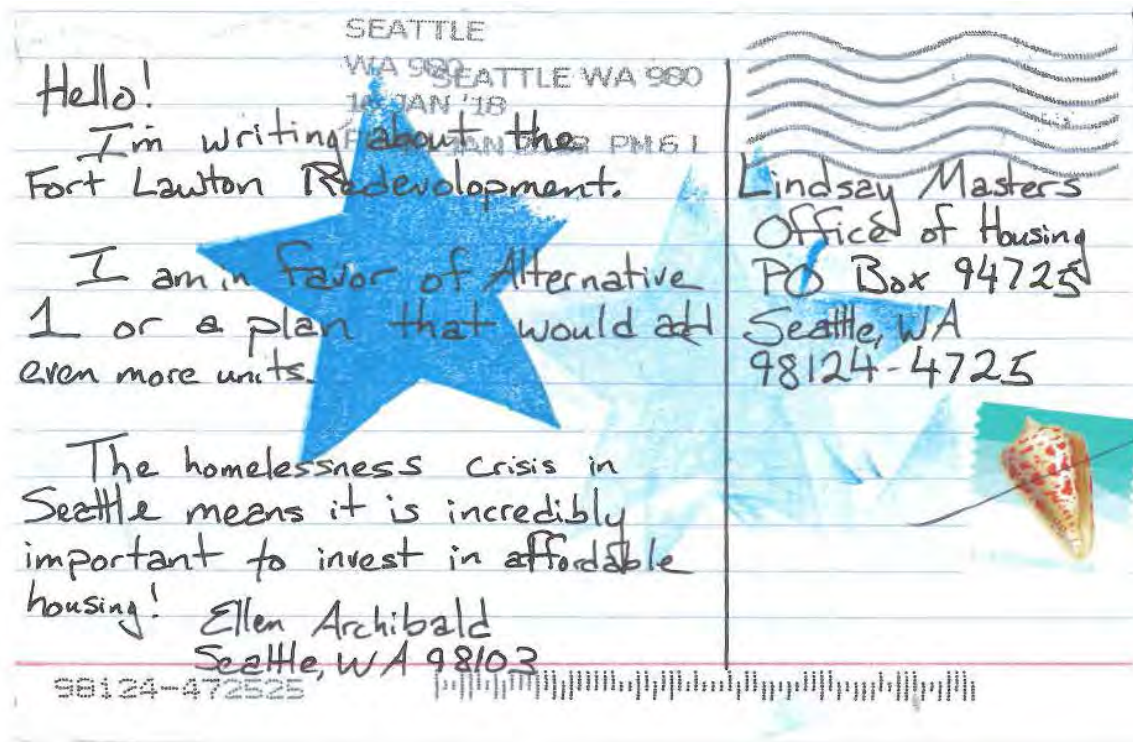 SEATTLE
WA 980
SEATTLE WA 980
JAN '18
PM 6 L
Hello!
I'm writing about the
Fort Lawton Redevolopment.
I am in favor of Alternative
1 or a plan that would add
even more units.
The homelessness crisis in
Seattle means it is incredibly
important to invest in affordable
housing!
Ellen Archibald
Seattle, WA 98103
Lindsay Masters
Office of Housing
PO Box 94725
Seattle, WA
98124-4725
98124-472525